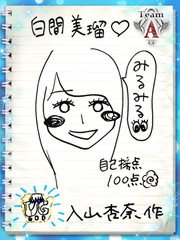 白間美瑠♡
Team
A
みるみる
自己採点
100点
入山杏奈、作